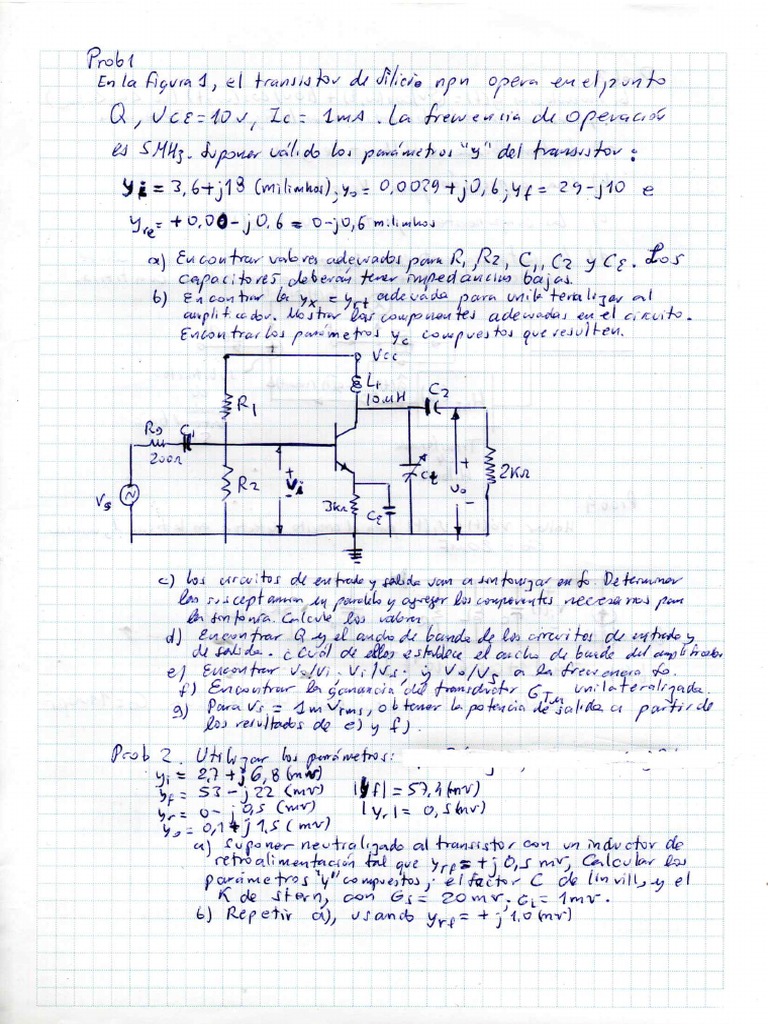 Prob 1
En la figura 1, el transistor de silicio npn opera en el punto
Q, VCE = 10 v, IC = 1mA. La frecuencia de operación
es 5MHz. Suponer válido los parámetros "y" del transistor:
yi = 3,6+j18 (milimhos); yo = 0,0029 + j0,6; yf = 29 - j10 e
yre = +0,00 - j0.6 = 0-j0,6 milimhos
a) Encontrar valores adecuados para R1, R2, C1, C2 y CE. Los
capacitores deberán tener impedancias bajas.
b) Encontrar la yx = yrt adecuada para unilateralizar al
amplificador. Mostrar los componentes adecuados en el circuito.
Encontrar los parámetros yc compuestos que resulten.
Vcc
L1
10μH
C2
R1
Rs
C1
200Ω
R2
+
Vi
-
Vs
3kΩ
CE
Ct
+
vo
-
2KΩ
c) Los circuitos de entrada y salida van a sintonizar en fo. Determinar
las susceptancias en paralelo y agregar los componentes necesarios para
la sintonía. Calcule los valores
d) Encontrar Q y el ancho de banda de los circuitos de entrada y
de salida. ¿Cuál de ellos establece el ancho de banda del amplificador.
e) Encontrar Vo/Vi, Vi/Vs; y Vo/Vs, a la frecuencia fo.
f) Encontrar la ganancia del transductor GTu unilateralizada.
g) Para Vs = 1mVrms, obtener la potencia de salida a partir de
los resultados de e) y f).
Prob 2. Utilizar los parámetros:
yi = 2,7 + j6,8 (mv)
yf = 53 - j22 (mv) |yf| = 57,4 (mv)
yr = 0 - j0,5 (mv) |yr| = 0,5 (mv)
yo = 0,1 + j1,5 (mv)
a) Suponer neutralizado al transistor con un inductor de
retroalimentación tal que yrf = +j0,5 mv, Calcular los
parámetros "y" compuestos; el factor C de linvill, y el
K de stern, con Gs = 20mv; GL = 1mv.
b) Repetir a), usando yrf = +j1,0 (mv)